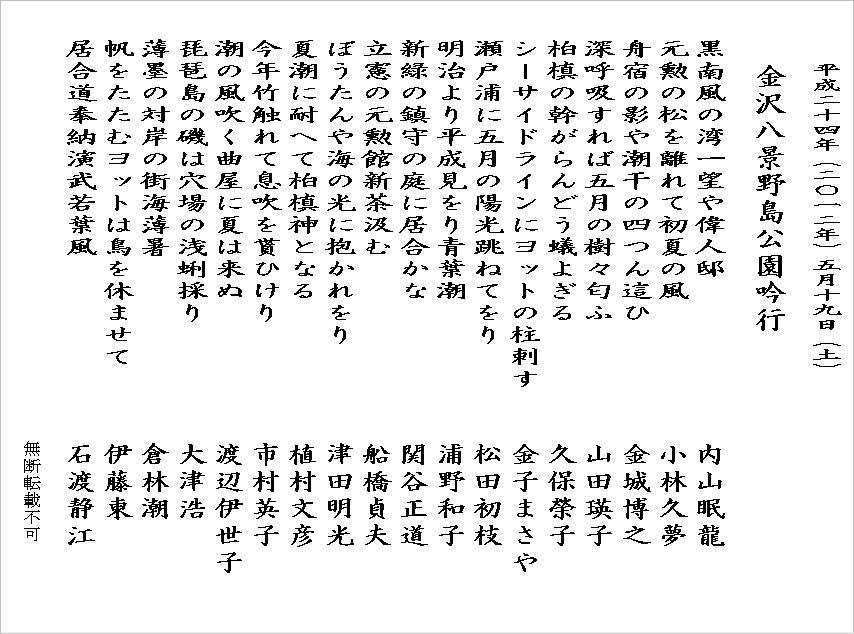 平成二十四年（二〇一二年）五月十九日（土）
金沢八景野島公園吟行
黒南風の湾一望や偉人邸　内山眠龍
元勲の松を離れて初夏の風　小林久夢
舟宿の影や潮干の四つん這ひ　金城博之
深呼吸すれば五月の樹々匂ふ　山田瑛子
柏槙の幹がらんどう蟻よぎる　久保榮子
シーサイドラインにヨットの柱刺す　金子まさや
瀬戸浦に五月の陽光跳ねてをり　松田初枝
明治より平成見をり青葉潮　浦野和子
新緑の鎮守の庭に居合かな　関谷正道
立憲の元勲館新茶汲む　船橋貞夫
ぼうたんや海の光に抱かれをり　津田明光
夏潮に耐へて柏槙神となる　植村文彦
今年竹触れて息吹を貰ひけり　市村英子
潮の風吹く曲屋に夏は来ぬ　渡辺伊世子
琵琶島の磯は穴場の浅蜊採り　大津浩
薄墨の対岸の街海薄暑　倉林潮
帆をたたむヨットは鳥を休ませて　伊藤東
居合道奉納演武若葉風　石渡静江
無断転載不可